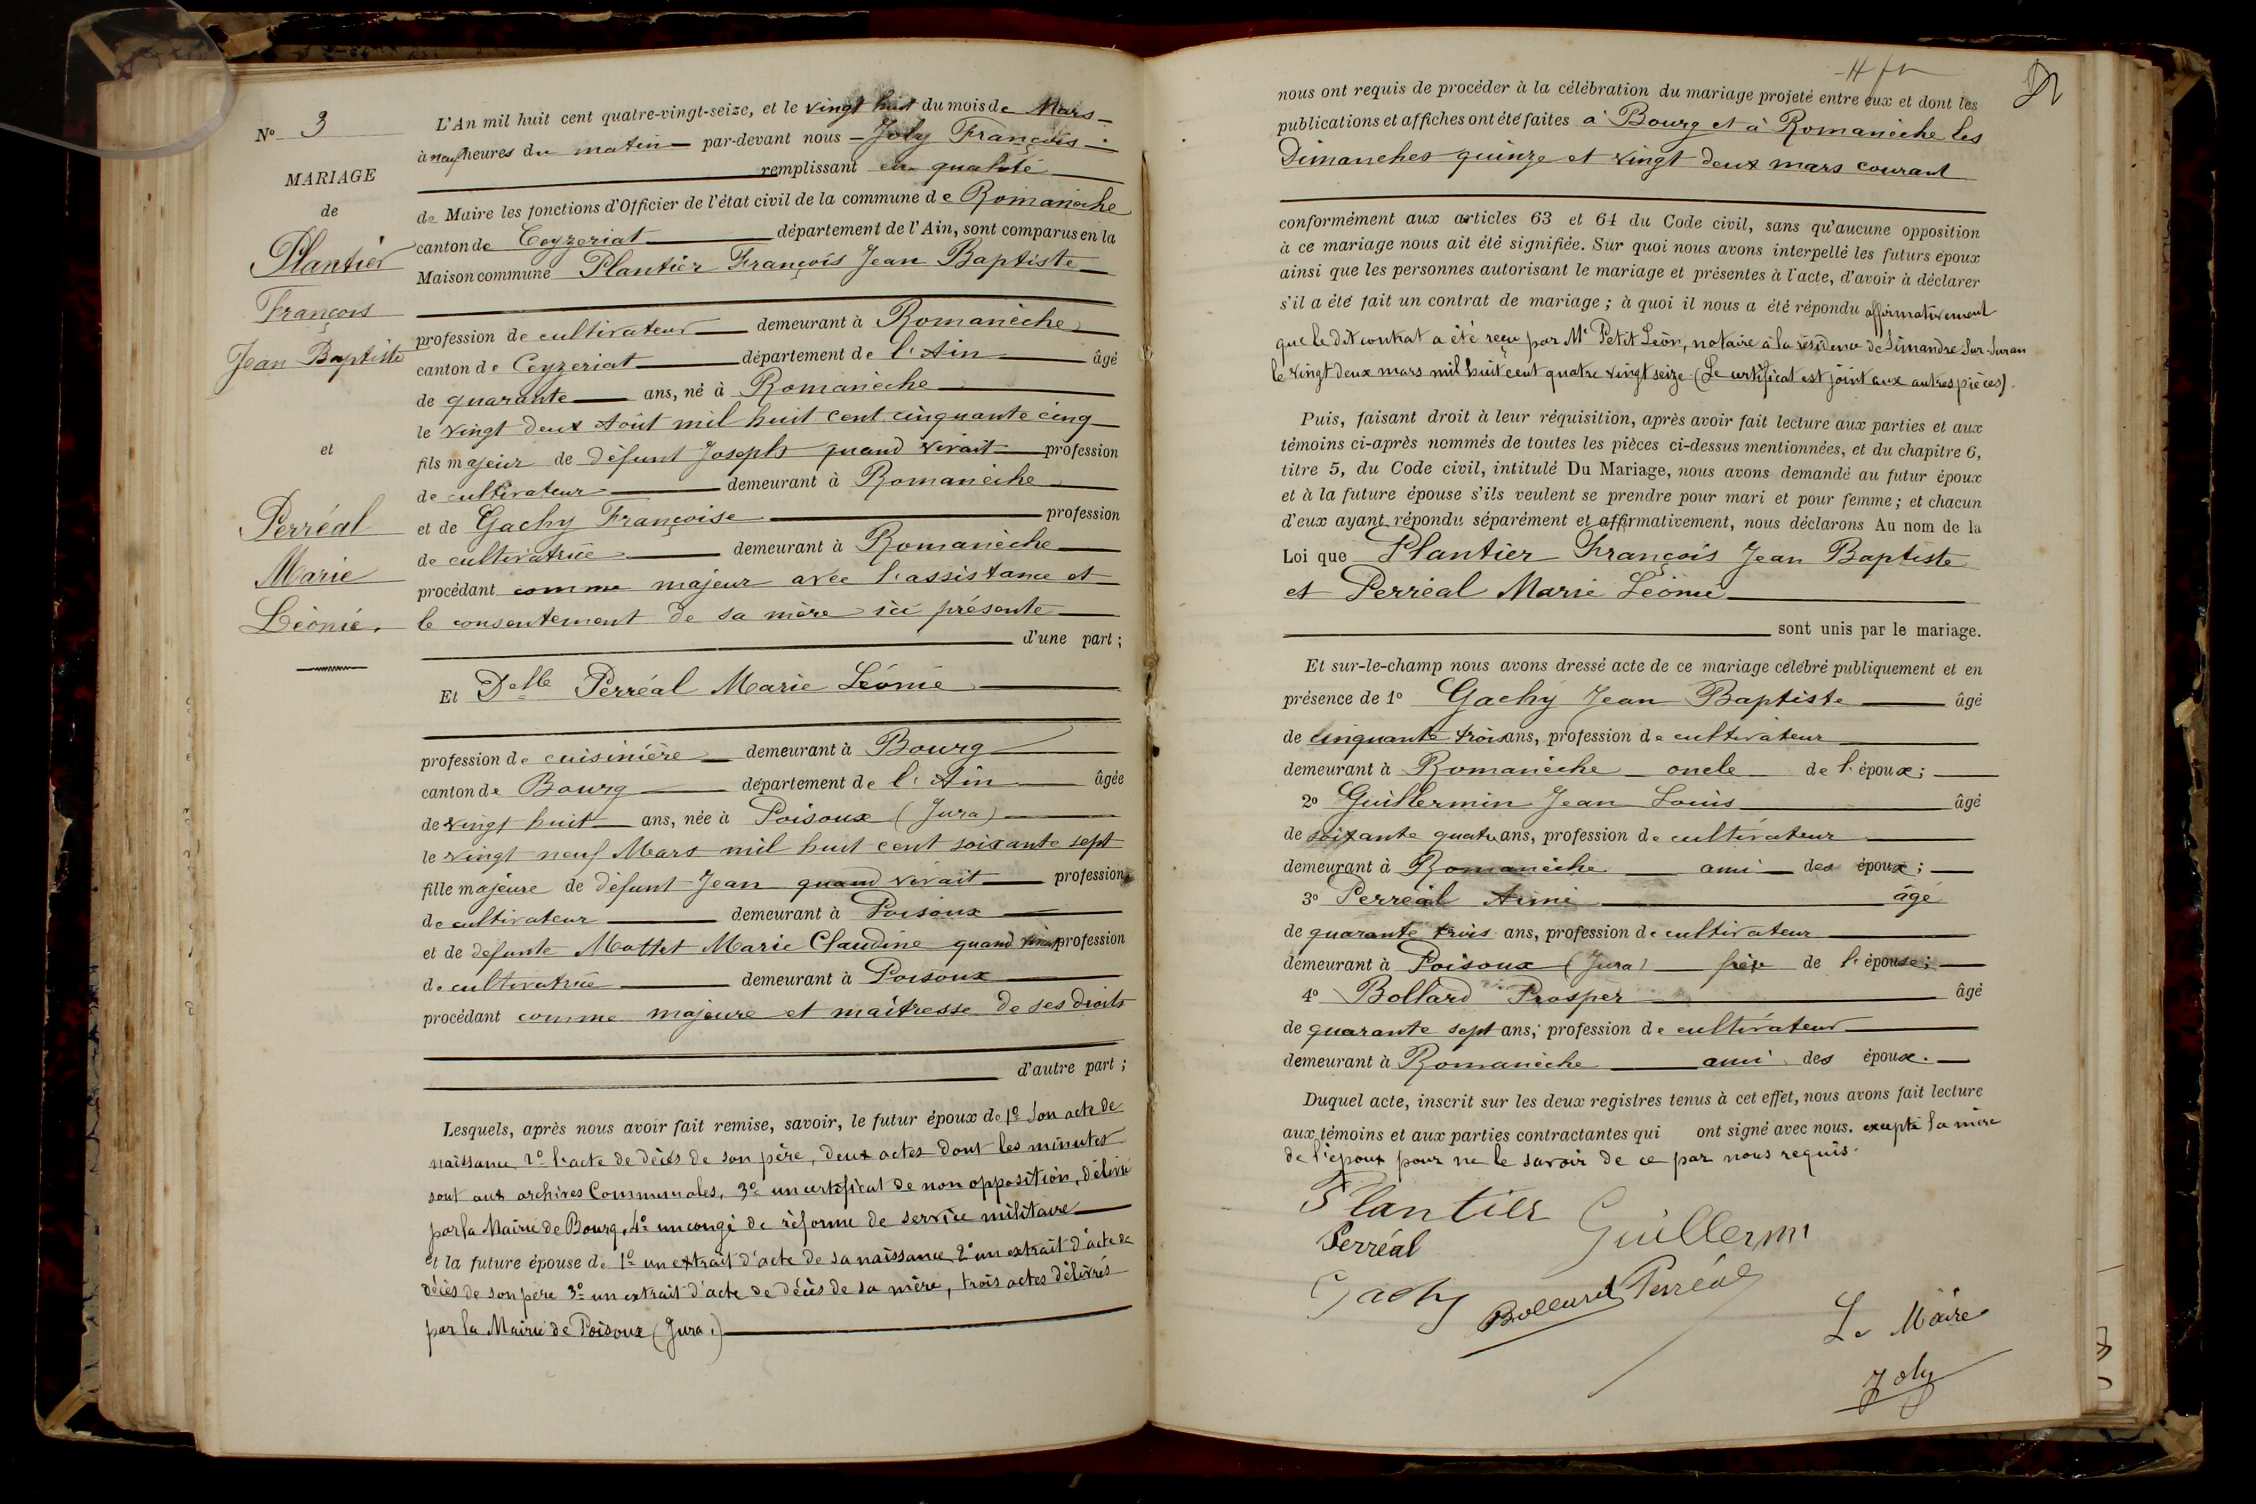 N° 3
MARIAGE
de
Plantier
François
Jean Baptiste
et
Perréal
Marie
Léonie.
L'An mil huit cent quatre-vingt-seize, et le vingt huit du mois de Mars
à neuf heures du matin par-devant nous Joly François
remplissant en qualité
de Maire les fonctions d'Officier de l'état civil de la commune de Romanèche
canton de Ceyzeriat département de l'Ain, sont comparus en la
Maison commune Plantier François Jean Baptiste
profession de cultivateur demeurant à Romanèche
canton de Ceyzeriat département de l'Ain âgé
de quarante ans, né à Romanèche
le vingt deux Août mil huit cent cinquante cinq
fils majeur de défunt Joseph quand vivait profession
de cultivateur demeurant à Romanèche
et de Gachy Françoise profession
de cultivatrice demeurant à Romanèche
procédant comme majeur avec l'assistance et
le consentement de sa mère ici présente
d'une part ;
Et Delle Perréal Marie Léonie
profession de cuisinière demeurant à Bourg
canton de Bourg département de l'Ain âgée
de vingt huit ans, née à Poisoux (Jura)
le vingt neuf Mars mil huit cent soixante sept
fille majeure de défunt Jean quand vivait profession
de cultivateur demeurant à Poisoux
et de défunte Mottet Marie Claudine quand vivait profession
de cultivatrice demeurant à Poisoux
procédant comme majeure et maîtresse de ses droits
d'autre part ;
Lesquels, après nous avoir fait remise, savoir, le futur époux de 1° Son acte de
naissance 2° l'acte de décès de son père, deux actes dont les minutes
sont aux archives Communales, 3° un certificat de non opposition, délivré
par la Mairie de Bourg, 4° un congé de réforme de service militaire
et la future épouse de 1° un extrait d'acte de sa naissance 2° un extrait d'acte de
décès de son père 3° un extrait d'acte de décès de sa mère, trois actes délivrés
par la Mairie de Poisoux (Jura.)
nous ont requis de procéder à la célébration du mariage projeté entre eux et dont les
publications et affiches ont été faites à Bourg et à Romanèche les
Dimanches quinze et vingt deux mars courant
conformément aux articles 63 et 64 du Code civil, sans qu'aucune opposition
à ce mariage nous ait été signifiée. Sur quoi nous avons interpellé les futurs époux
ainsi que les personnes autorisant le mariage et présentes à l'acte, d'avoir à déclarer
s'il a été fait un contrat de mariage ; à quoi il nous a été répondu affirmativement
que le dit contrat a été reçu par Me Petit Léon, notaire à la résidence de Simandre sur Suran
le vingt deux mars mil huit cent quatre vingt seize (Le certificat est joint aux autres pièces).
Puis, faisant droit à leur réquisition, après avoir fait lecture aux parties et aux
témoins ci-après nommés de toutes les pièces ci-dessus mentionnées, et du chapitre 6,
titre 5, du Code civil, intitulé Du Mariage, nous avons demandé au futur époux
et à la future épouse s'ils veulent se prendre pour mari et pour femme ; et chacun
d'eux ayant répondu séparément et affirmativement, nous déclarons Au nom de la
Loi que Plantier François Jean Baptiste
et Perréal Marie Léonie
sont unis par le mariage.
Et sur-le-champ nous avons dressé acte de ce mariage célébré publiquement et en
présence de 1° Gachy Jean Baptiste âgé
de cinquante trois ans, profession de cultivateur
demeurant à Romanèche oncle de l'époux ;
2° Guillermin Jean Louis âgé
de soixante quatre ans, profession de cultivateur
demeurant à Romanèche ami des époux ;
3° Perréal Aimé âgé
de quarante trois ans, profession de cultivateur
demeurant à Poisoux (Jura) frère de l'épouse ;
4° Bollard Prosper âgé
de quarante sept ans, profession de cultivateur
demeurant à Romanèche ami des époux.
Duquel acte, inscrit sur les deux registres tenus à cet effet, nous avons fait lecture
aux témoins et aux parties contractantes qui ont signé avec nous. excepté la mère
de l'époux pour ne le savoir de ce par nous requis.
Plantier
Guillermi
Perréal
Gachy
Bollard
Perréal
Le Maire
Joly